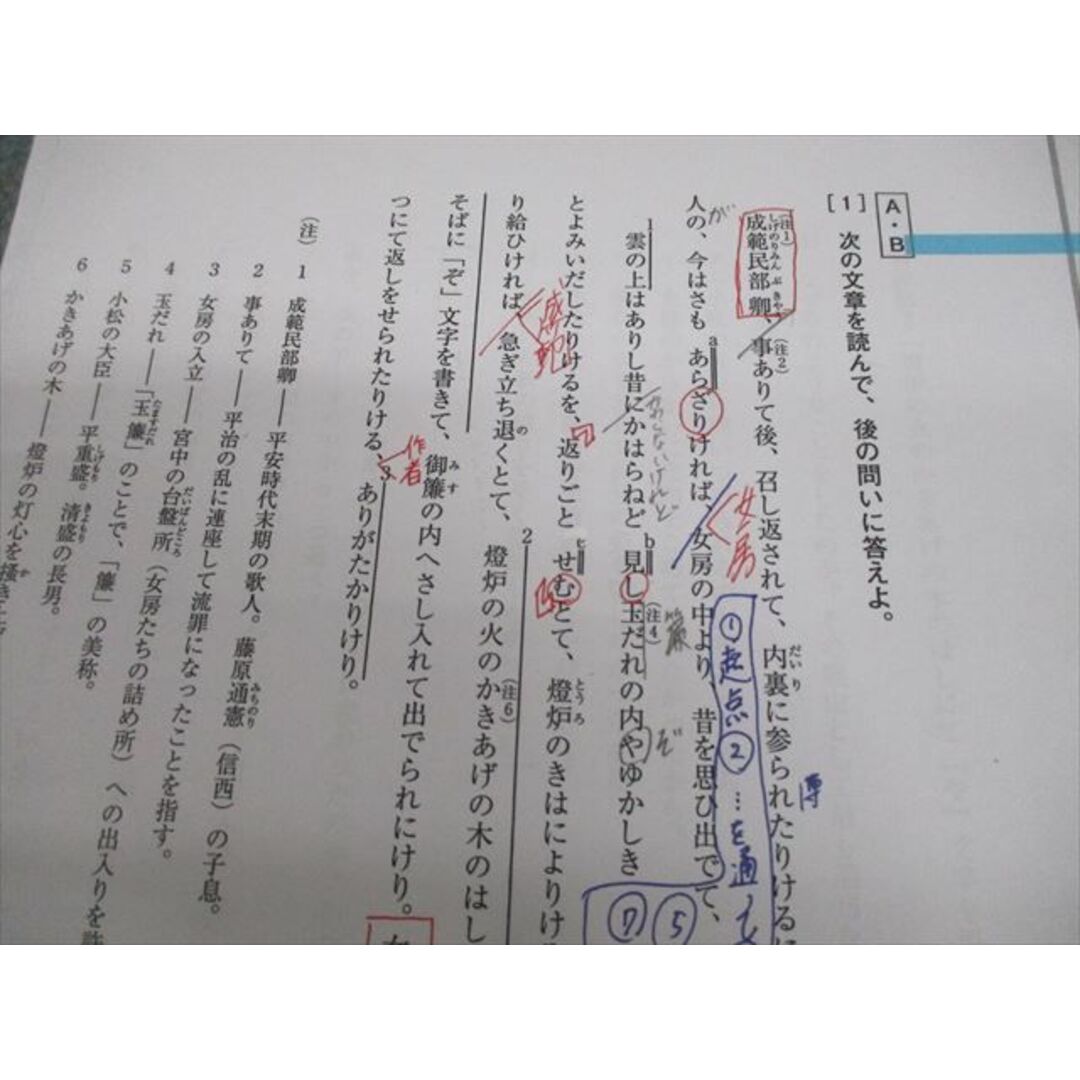 A・B
[1] 次の文章を読んで、後の問いに答えよ。
(注1)成範民部卿、(注2)事ありて後、召し返されて、内裏に参られたりけるに
しげのりみんぶきやう
だいり
尊
人の、今はさも あらざりければ、女房の中より 昔を思ひ出でて、
が
a
女房
①起点②…を通
1
雲の上はありし昔にかはらねど 見し玉だれの内やゆかしき
b
(注4)
簾
ぞ
⑦⑤
とよみいだしたりけるを、返りごと せむとて、燈炉のきはによりけ
とうろ
り給ひければ、急ぎ立ち退くとて、 燈炉の火のかきあげの木のはし
成範
の
2
(注6)
そばに「ぞ」文字を書きて、御簾の内へさし入れて出でられにけり。
みす
作者
つにて返しをせられたりける、ありがたかりけり。
3
(注)
1 成範民部卿――平安時代末期の歌人。藤原通憲(信西)の子息。
みちのり
2 事ありて――平治の乱に連座して流罪になったことを指す。
3 女房の入立――宮中の台盤所(女房たちの詰め所)への出入りを
だいばんどころ
4 玉だれ――「玉簾」のことで、「簾」の美称。
たますだれ
5 小松の大臣――平重盛。清盛の長男。
しげもり
きよもり
6 かきあげの木――燈炉の灯心を掻き
か